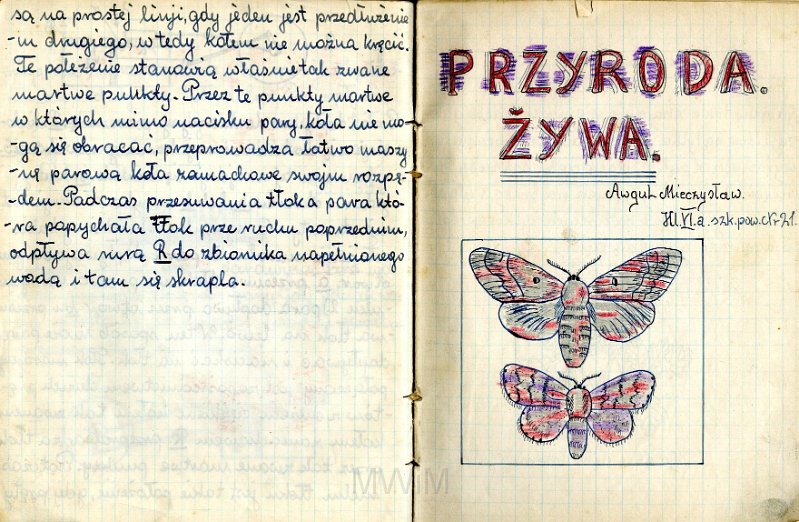 są na prostej linji, gdy jeden jest przedłużenie
-m drugiego, wtedy kołem nie można kręcić.
Te położenie stanowią właśnie tak zwane
martwe punkty. Przez te punkty martwe
w których mimo nacisku pary, koła nie mo-
-gą się obracać, przeprowadza łatwo maszy
-nę parową koła zamachowe swojm rozpę-
-dem. Padczas przesuwania tłoka para któ-
-ra popychała tłok prze ruchu poprzednim,
odpływa rurą R do zbiornika napełnionego
wodą i tam się skrapla.
PRZYRODA.
ŻYWA.
Awguł Mieczysław.
Kl. VI.a. szk. pow. Nr 21.
MWM